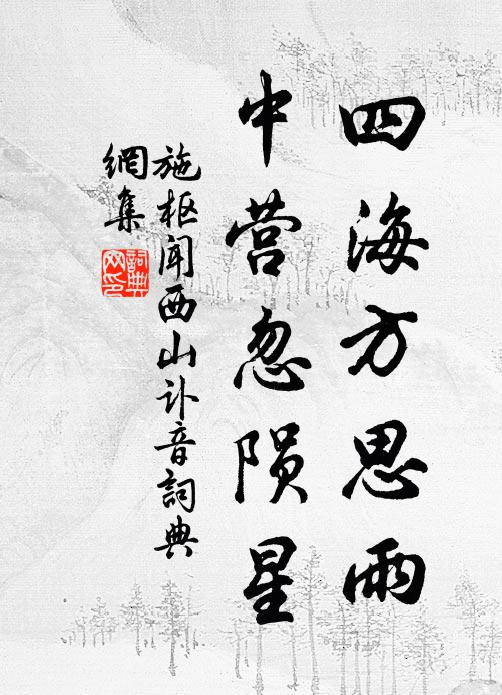 四海方思雨
中营忽陨星
施枢闻西山讣音詞典
網集
詞典
网印